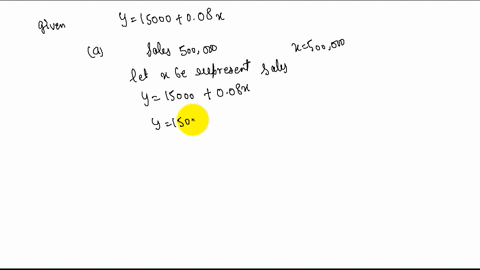 given y=15000+0.08x
(a) Sales 500,000 x=500,000
let x be represent sales
y=15000 + 0.08x
y=150